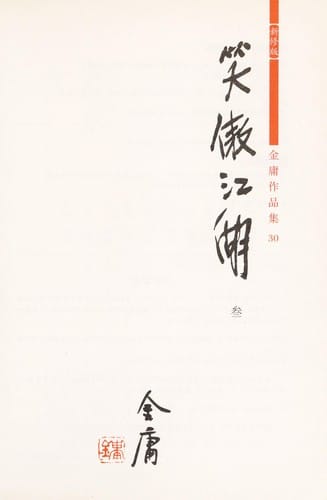 【新修版】
金庸作品集 30
笑傲江湖
叁
金庸
金庸